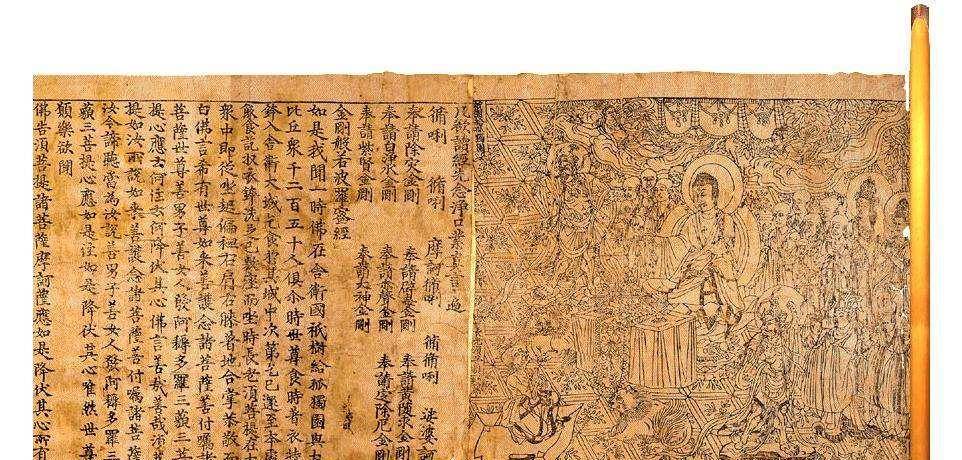 凡欲讀經先念淨口業真言一遍
脩唎 脩唎 摩訶脩唎 脩脩唎 娑婆訶
奉請除災金剛 奉請辟毒金剛 奉請黃隨求金剛
奉請白淨水金剛 奉請赤聲金剛 奉請定除厄金剛
奉請紫賢金剛 奉請大神金剛
金剛般若波羅蜜經
如是我聞一時佛在舍衛國祇樹給孤獨園與大
比丘衆千二百五十人俱尒時世尊食時著衣持
鉢入舍衛大城乞食於其城中次第乞已還至本處
飯食訖收衣鉢洗足已敷座而坐時長老須菩提在
衆中即從坐起偏袒右肩右膝著地合掌恭敬而
白佛言希有世尊如來善護念諸菩薩善付囑諸
菩薩世尊善男子善女人發阿耨多羅三藐三菩
提心應云何住云何降伏其心佛言善哉善哉須菩
提如汝所說如來善護念諸菩薩善付囑諸菩
汝今諦聽當為汝說善男子善女人發阿耨多羅三
藐三菩提心應如是住如是降伏其心唯然世尊
願樂欲聞
佛告須菩提諸菩薩摩訶薩應如是降伏其心所有